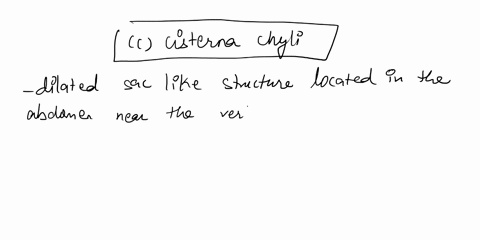 (c) cisterna chyli
- dilated sac like structure located in the
abdomen near the ver